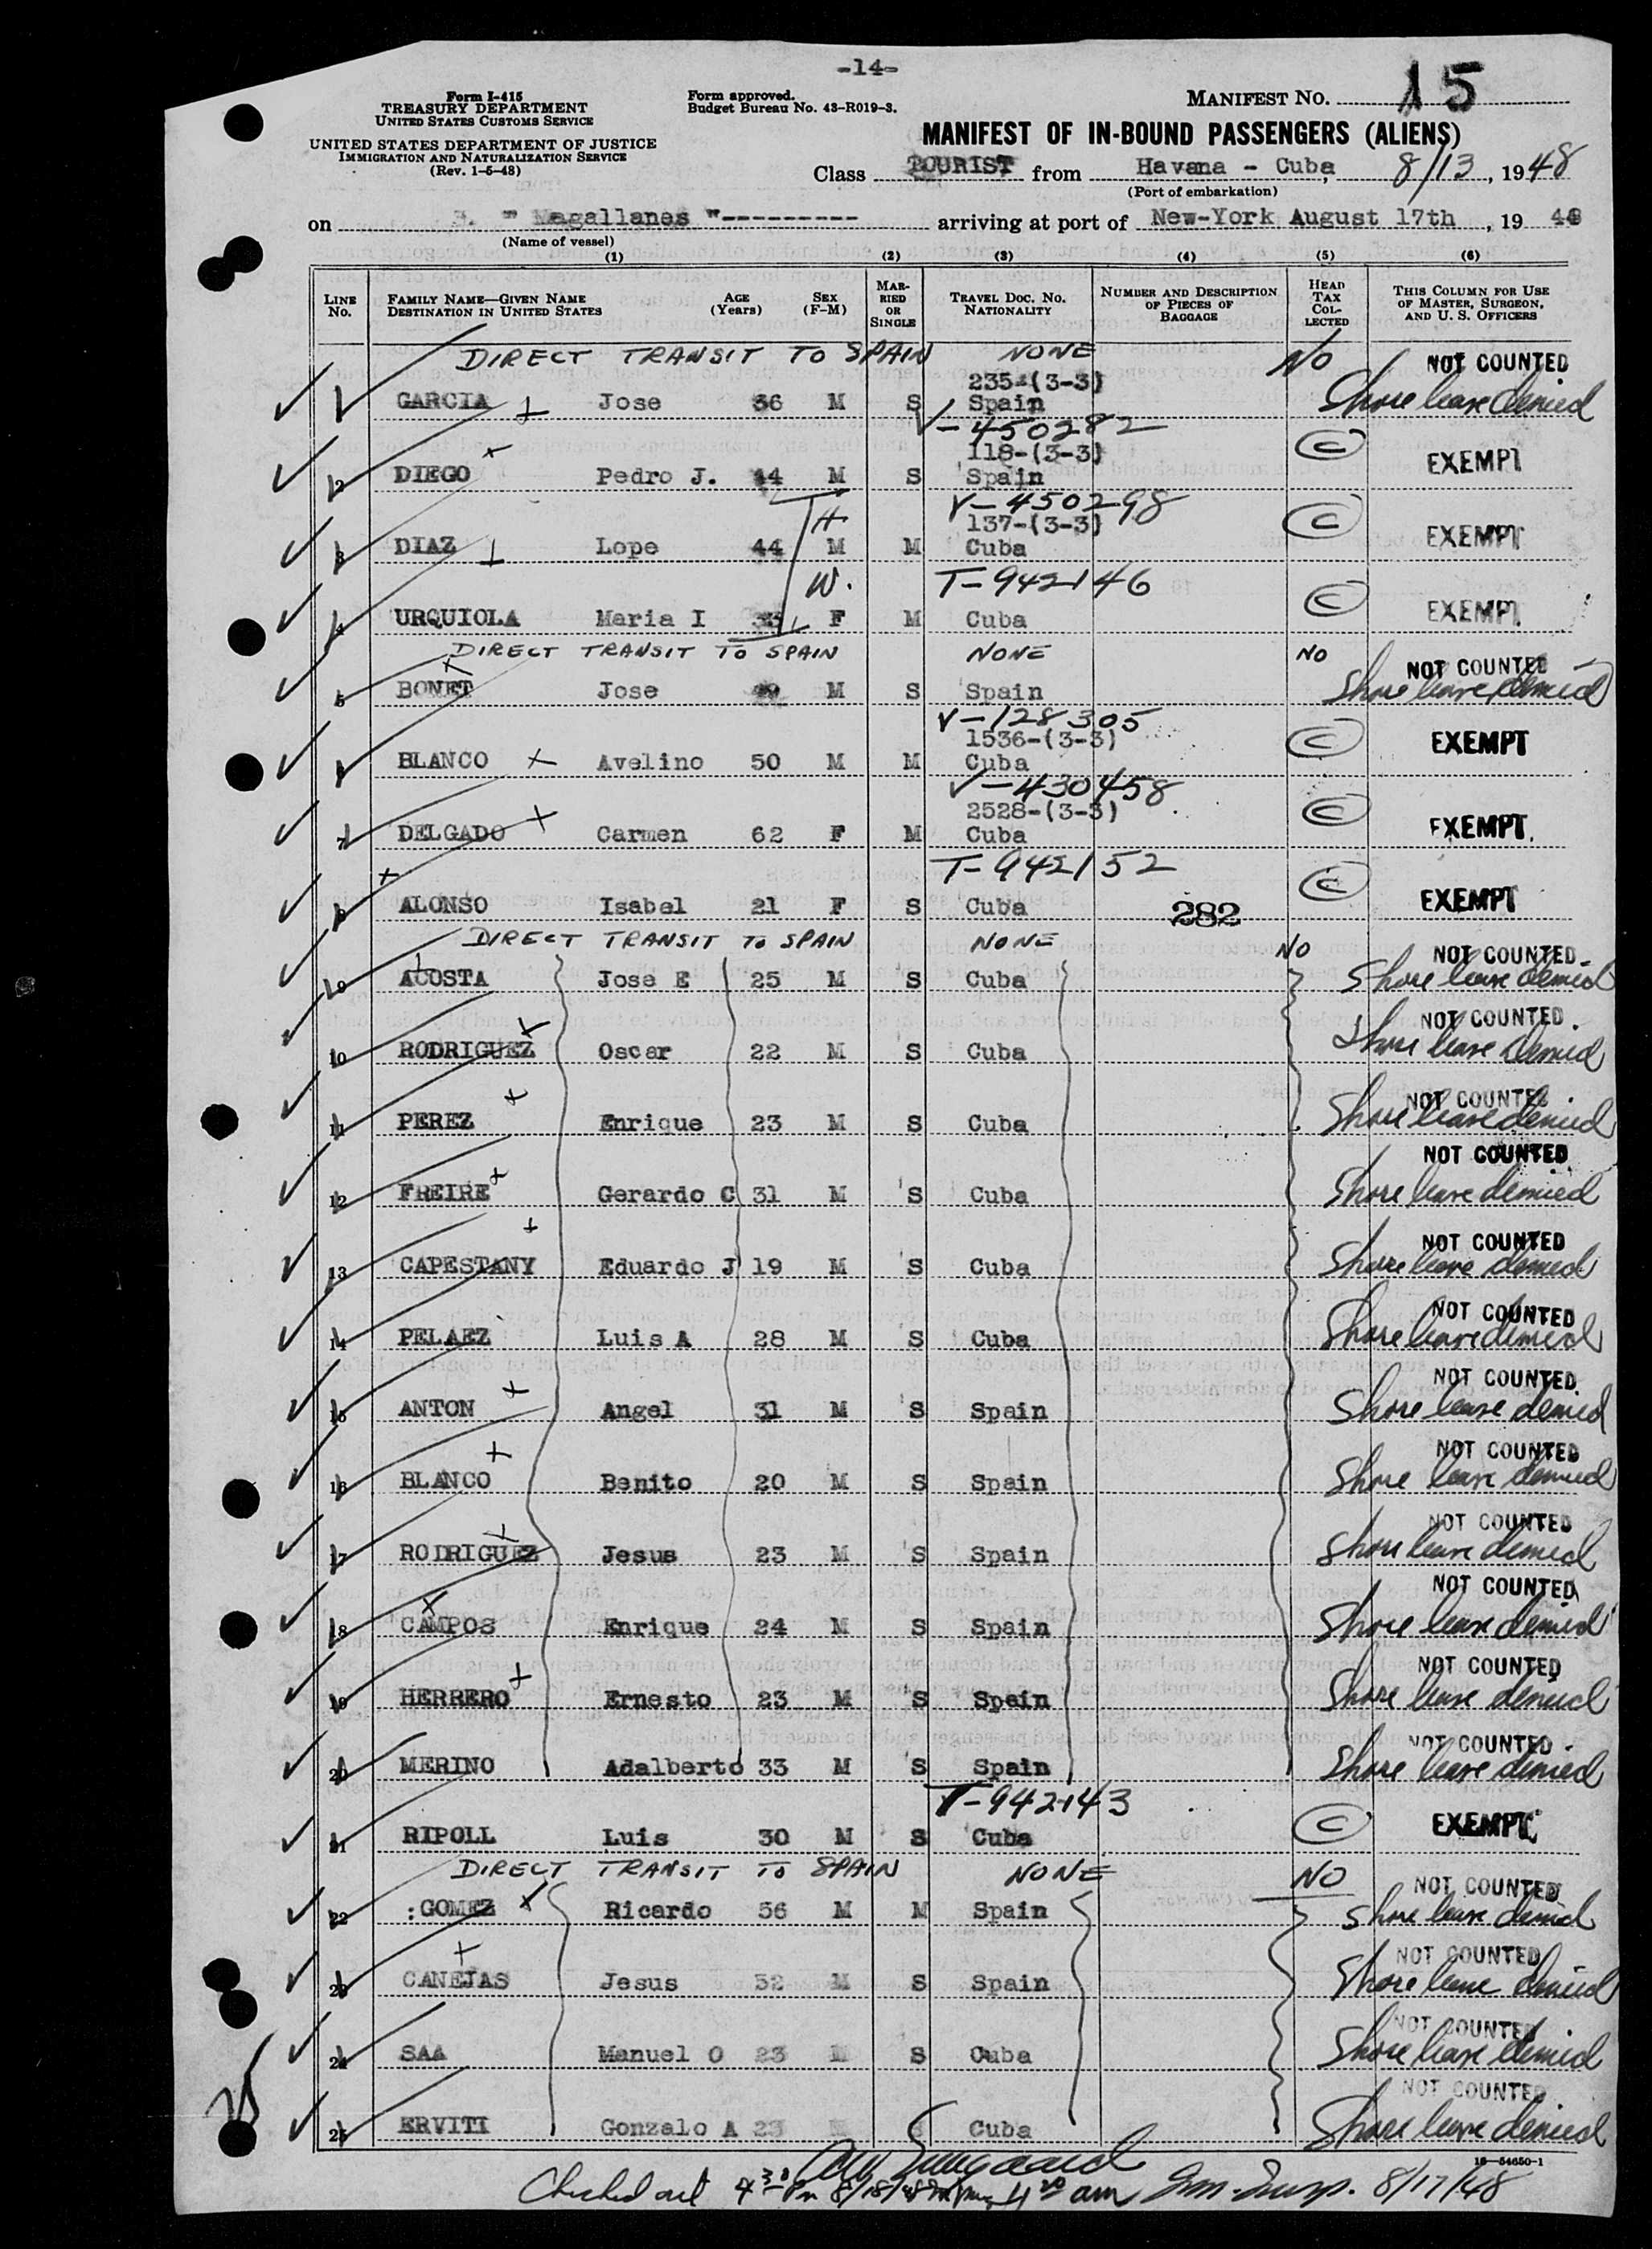 -14-
Form I-415
TREASURY DEPARTMENT
UNITED STATES CUSTOMS SERVICE
UNITED STATES DEPARTMENT OF JUSTICE
IMMIGRATION AND NATURALIZATION SERVICE
(Rev. 1-5-48)
Form approved.
Budget Bureau No. 43-R019-3.
MANIFEST NO. 15
MANIFEST OF IN-BOUND PASSENGERS (ALIENS)
Class TOURIST from Havana - Cuba, 8/13, 1948
(Port of embarkation)
on "Magallanes"--------- arriving at port of New-York August 17th, 19 48
(Name of vessel)
(1) (2) (3) (4) (5) (6)
LINE No. FAMILY NAME—GIVEN NAME DESTINATION IN UNITED STATES AGE (Years) SEX (F-M) MARRIED OR SINGLE TRAVEL DOC. NO. NATIONALITY NUMBER AND DESCRIPTION OF PIECES OF BAGGAGE HEAD TAX COLLECTED THIS COLUMN FOR USE OF MASTER, SURGEON, AND U. S. OFFICERS
DIRECT TRANSIT TO SPAIN NONE NO NOT COUNTED
235-(3-3)
1 GARCIA Jose 36 M S Spain Shore leave denied
V-450282
118-(3-3) C
2 DIEGO Pedro J. 44 M S Spain EXEMPT
V-450298
H 137-(3-3) C
3 DIAZ Lope 44 M M Cuba EXEMPT
W. T-942146 C
4 URQUIOLA Maria I F M Cuba EXEMPT
DIRECT TRANSIT TO SPAIN NONE NO NOT COUNTED
5 BONET Jose M S Spain Shore leave denied
V-128305
1536-(3-3) C
6 BLANCO Avelino 50 M M Cuba EXEMPT
V-430458
2528-(3-3) C
7 DELGADO Carmen 62 F M Cuba EXEMPT
T-942152 C
8 ALONSO Isabel 21 F S Cuba 282 EXEMPT
DIRECT TRANSIT TO SPAIN NONE NO NOT COUNTED
9 ACOSTA Jose E 25 M S Cuba Shore leave denied
NOT COUNTED
10 RODRIGUEZ Oscar 22 M S Cuba Shore leave denied
NOT COUNTED
11 PEREZ Enrique 23 M S Cuba Shore leave denied
NOT COUNTED
12 FREIRE Gerardo C 31 M S Cuba Shore leave denied
NOT COUNTED
13 CAPESTANY Eduardo J 19 M S Cuba Shore leave denied
NOT COUNTED
14 PELAEZ Luis A 28 M S Cuba Shore leave denied
NOT COUNTED
15 ANTON Angel 31 M S Spain Shore leave denied
NOT COUNTED
16 BLANCO Benito 20 M S Spain Shore leave denied
NOT COUNTED
17 RODRIGUEZ Jesus 23 M S Spain Shore leave denied
NOT COUNTED
18 CAMPOS Enrique 24 M S Spain Shore leave denied
NOT COUNTED
19 HERRERO Ernesto 23 M S Spain Shore leave denied
NOT COUNTED
20 MERINO Adalberto 33 M S Spain Shore leave denied
T-942143 C
21 RIPOLL Luis 30 M S Cuba EXEMPT
DIRECT TRANSIT TO SPAIN NONE NO NOT COUNTED
22 :GOMEZ Ricardo 56 M M Spain Shore leave denied
NOT COUNTED
23 CANEJAS Jesus 32 M S Spain Shore leave denied
NOT COUNTED
24 SAA Manuel O 23 M S Cuba Shore leave denied
NOT COUNTED
25 ERVITI Gonzalo A 23 Cuba Shore leave denied
25
16-54650-1
Checked out 4 30 Pm 8/18/48 11 00 am Im. Insp. 8/17/48